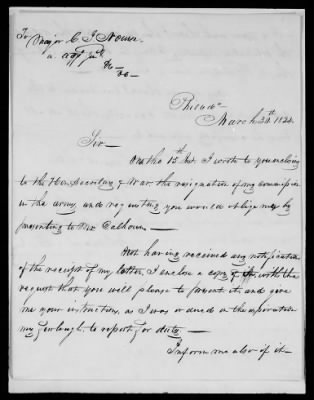 To Major C. J. Nourse
a. adjt Genl
&c —
&c —
Philada
March 30th 1824.
Sir —
On the 15th Inst. I wrote to you enclosing
to the Hon. Secretary of War the resignation of my commission
in the army, and requesting you would oblige me by
presenting to Mr Calhoun —
Not having received any notification
of the receipt of my letter, I enclose a copy of it, with the
request that you will please to present it, and give
me your instructions, as I was ordered on the expiration
my furlough, to report for duty —
Inform me also if it